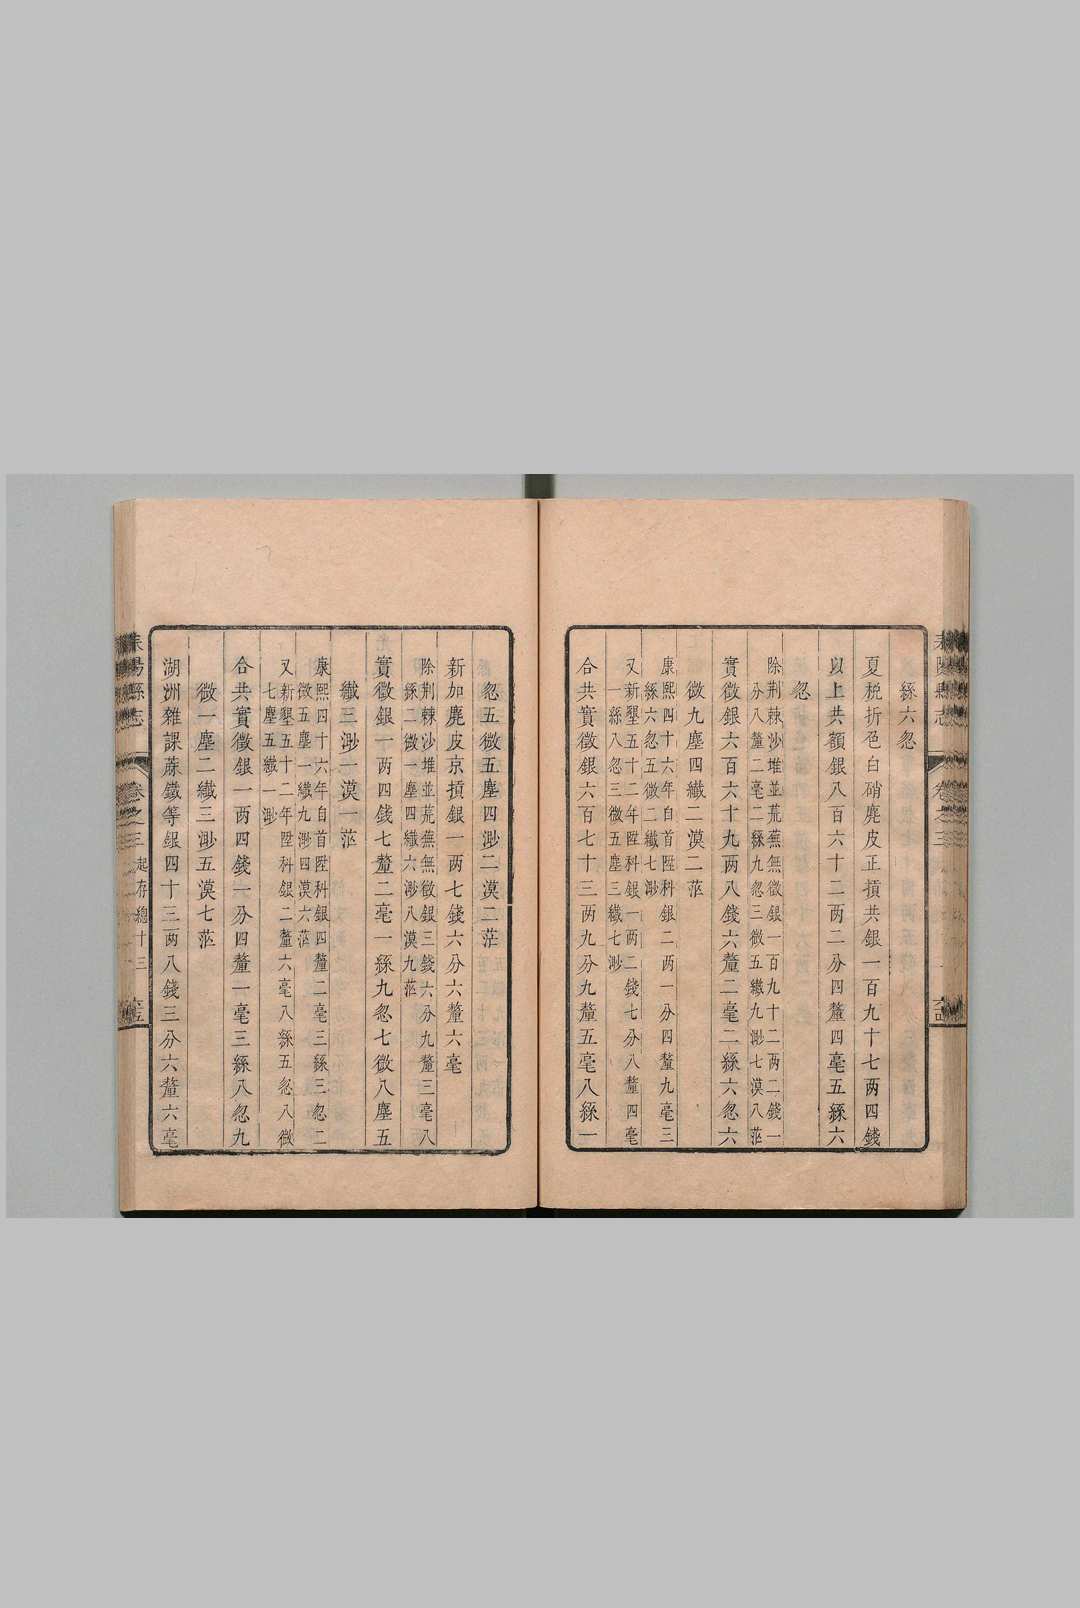 絲六忽
夏稅折色白硝麂皮正損共銀一百九十七两四錢
以上共額銀八百六十二两二分四釐四毫五絲六
忽
除荆棘沙堆並荒蕪無徵銀一百九十二两二錢一
分八釐二毫二絲九忽三微五纖九渺七漠八茫
實徵銀六百六十九两八錢六釐二毫二絲六忽六
微九塵四纖二漠二茫
康熙四十六年自首陞科銀二两一分四釐九毫三
絲六忽五微二纖七渺
又新墾五十二年陞科銀一两二錢七分八釐四毫
一絲八忽三微五塵三纖七渺
合共實徵銀六百七十三两九分九釐五毫八絲一
忽五微五塵四渺二漠二茫
新加麂皮京損銀一两七錢六分六釐六毫
除荆棘沙堆並荒蕪無徵銀三錢六分九釐三毫八
絲二微一塵四纖六渺八漠九茫
實徵銀一两四錢七釐二毫一絲九忽七微八塵五
纖三渺一漠一茫
康熙四十六年自首陞科銀四釐二毫三絲三忽二
微五塵一纖九渺四漠六茫
又新墾五十二年陞科銀二釐六毫八絲五忽八微
七塵五纖一渺
合共實徵銀一两四錢一分四釐一毫三絲八忽九
微一塵二纖三渺五漠七茫
湖洲雜課蔴鐵等銀四十三两八錢三分六釐六毫
耒陽縣志
卷之三
起存總十三